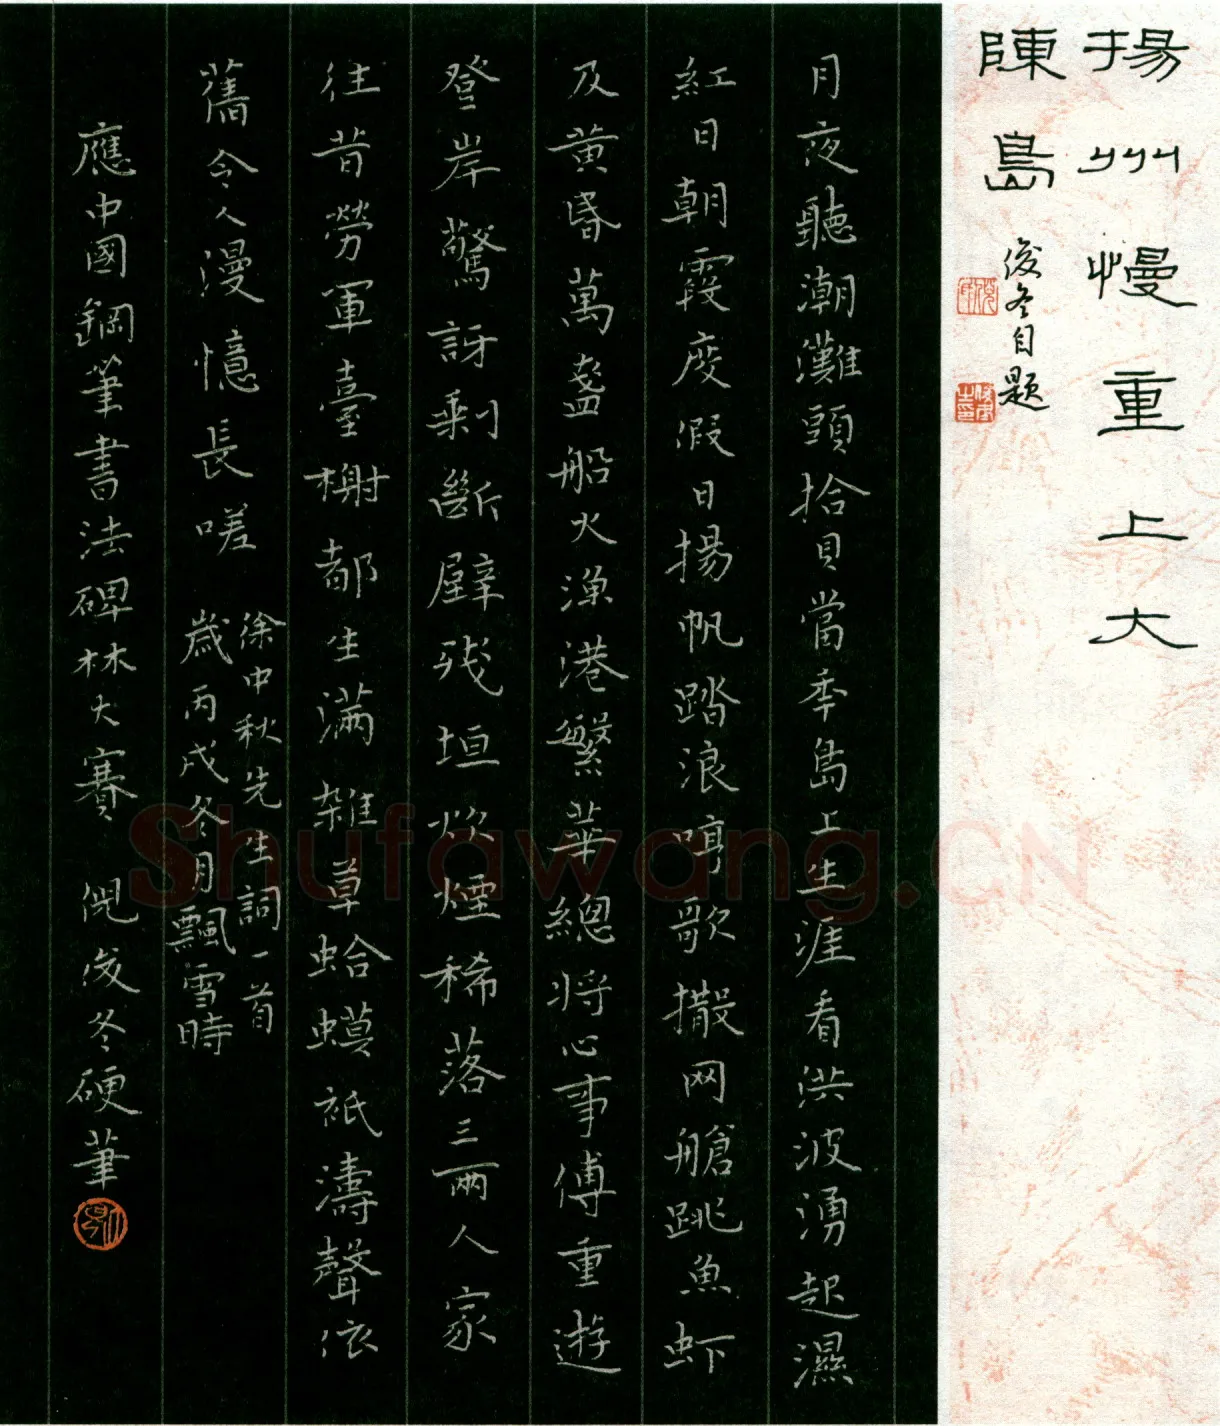 揚州慢重上大
陳島
俊冬自題
月夜聽潮灘頭拾貝當季島上生涯看洪波湧起濕
紅日朝霞度假日揚帆踏浪哼歌撒网艙跳魚虾
及黃昏萬盞船火漁港繁華總將心事傅重遊
登岸驚訝剩斷壁残垣炊煙稀落三兩人家
往昔勞軍臺榭都生滿雜草蛤蟆祇濤聲依
舊令人漫憶長嗟
徐中秋先生詞一首
歲丙戌冬月飄雪時
應中國鋼筆書法碑林大賽 倪俊冬硬筆
Shufawang.CN